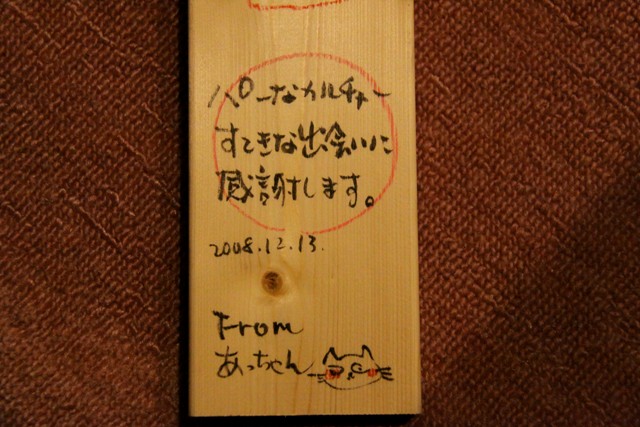 パローなカルチャー
すてきな出会いに
感謝します。
2008.12.13.
From
あっちゃん